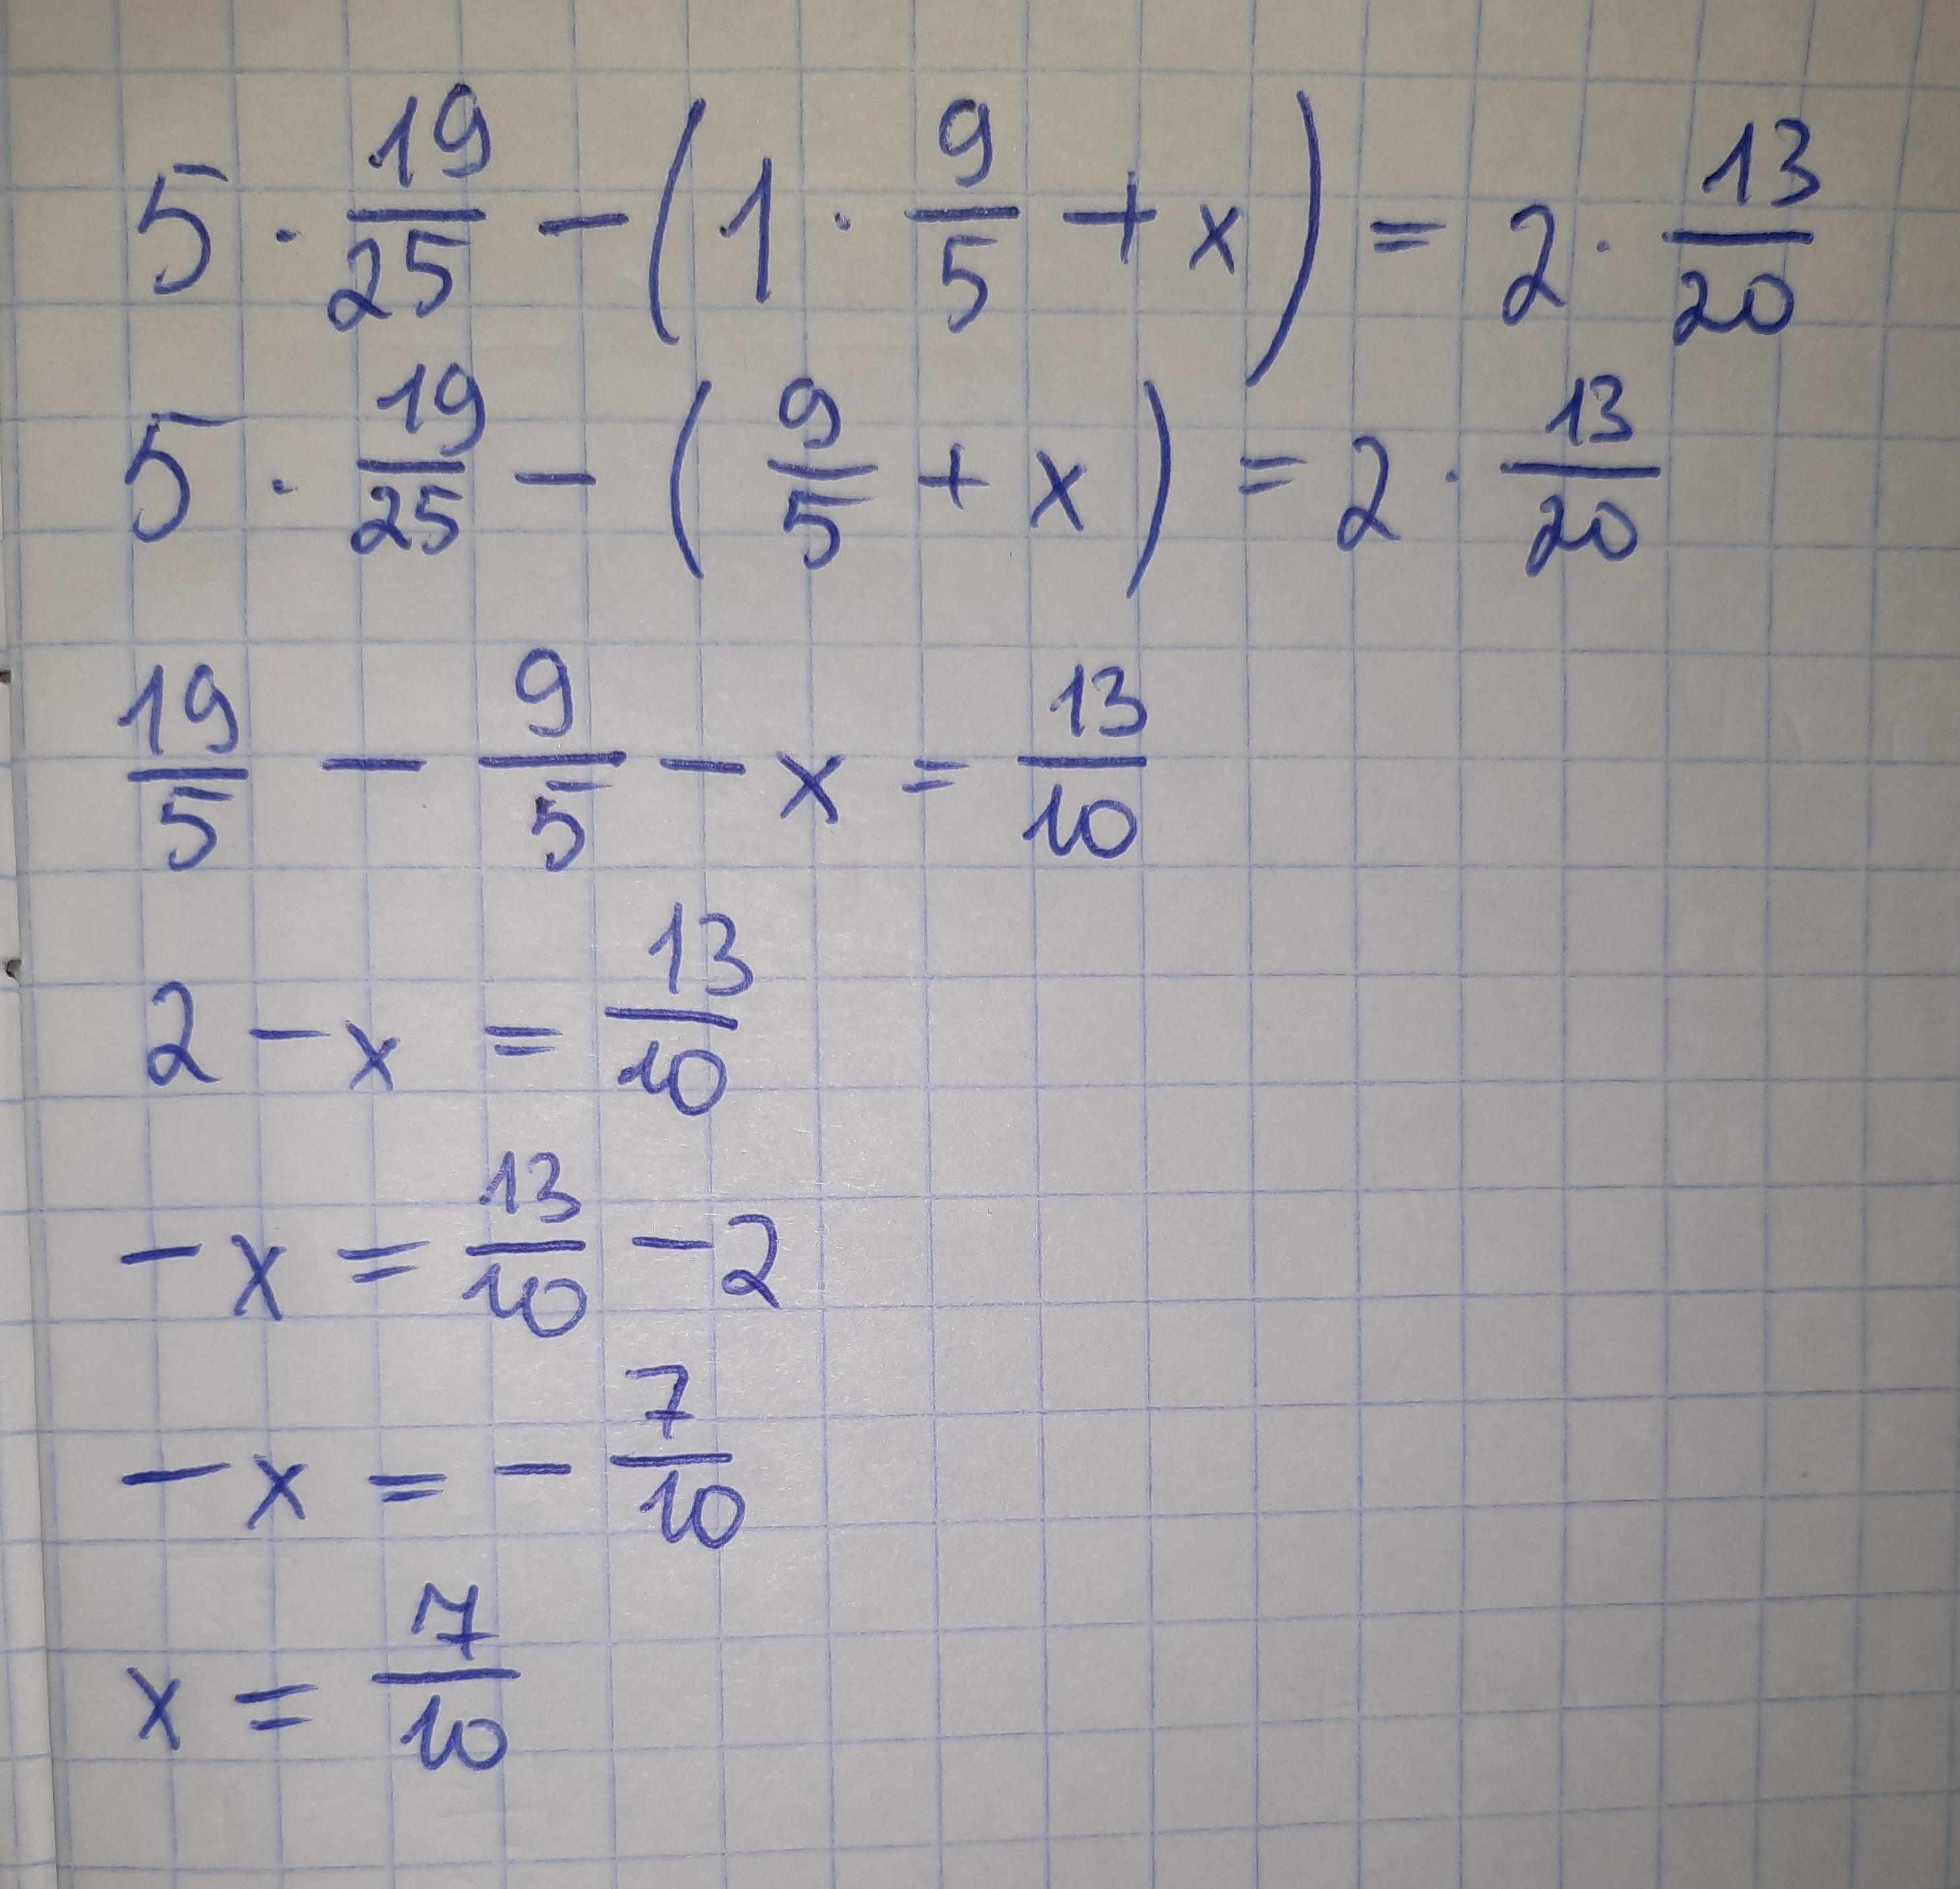 5 · 19/25 − (1 · 9/5 + x) = 2 · 13/20
5 · 19/25 − (9/5 + x) = 2 · 13/20
19/5 − 9/5 − x = 13/10
2 − x = 13/10
−x = 13/10 − 2
−x = − 7/10
x = 7/10